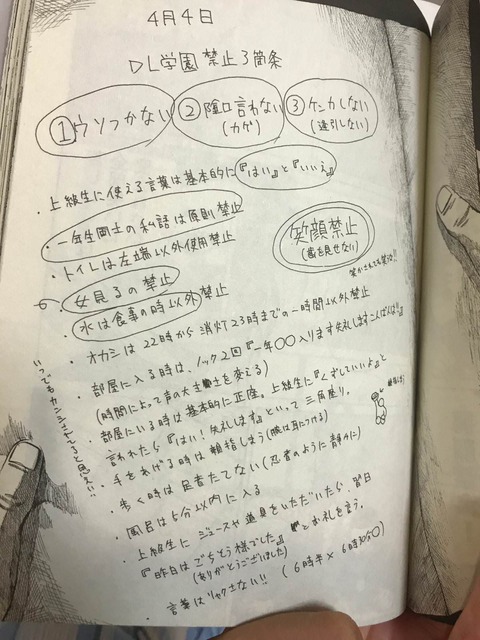 4月4日
DL学園 禁止3箇条
①ウソつかない ②陰口言わない(カゲ) ③ケンカしない(逢引しない)
・上級生に使える言葉は基本的に『はい』と『いいえ』
・一年生同士の私語は原則禁止
・トイレは左端以外使用禁止
笑顔禁止
(歯を見せない)
笑かされても禁止!!
・女見るの禁止
・水は食事の時以外禁止
・オカシは22時から消灯23時までの一時間以外禁止
・部屋に入る時は、ノック2回『一年○○入ります失礼しますこんばんは!!』
(時間によって声の大きさを変える)
・部屋にいる時は基本的に正座。上級生に『くずしていいよ』と
言われたら『はい!失礼します』といって三角座り。
・手をあげる時は親指しまう(腕は耳につける)
・歩く時は足音たてない(忍者のように静かに)
・風呂は5分以内に入る
・上級生にジュースや道具をいただいたら、翌日
『昨日はごちそう様でした』とお礼を言う。
(ありがとうございました)
・言葉はリャクさない!! (6時半× 6時30分○)